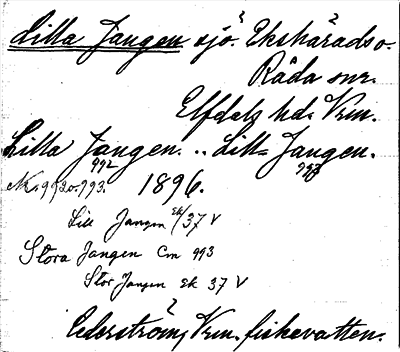 Lilla Jangen sjö. Ekshärads o.
Råda snr.
Elfdals hd. Vrm.
Lilla Jangen. .. Lill= Jangen.
992 993
No. 992 o. 993. 1896.
Lill Jangen Ek/37 V
Stora Jangen Cm 993
Stor Jangen Ek 37 V
Cederström, Vrm. fiskevatten.